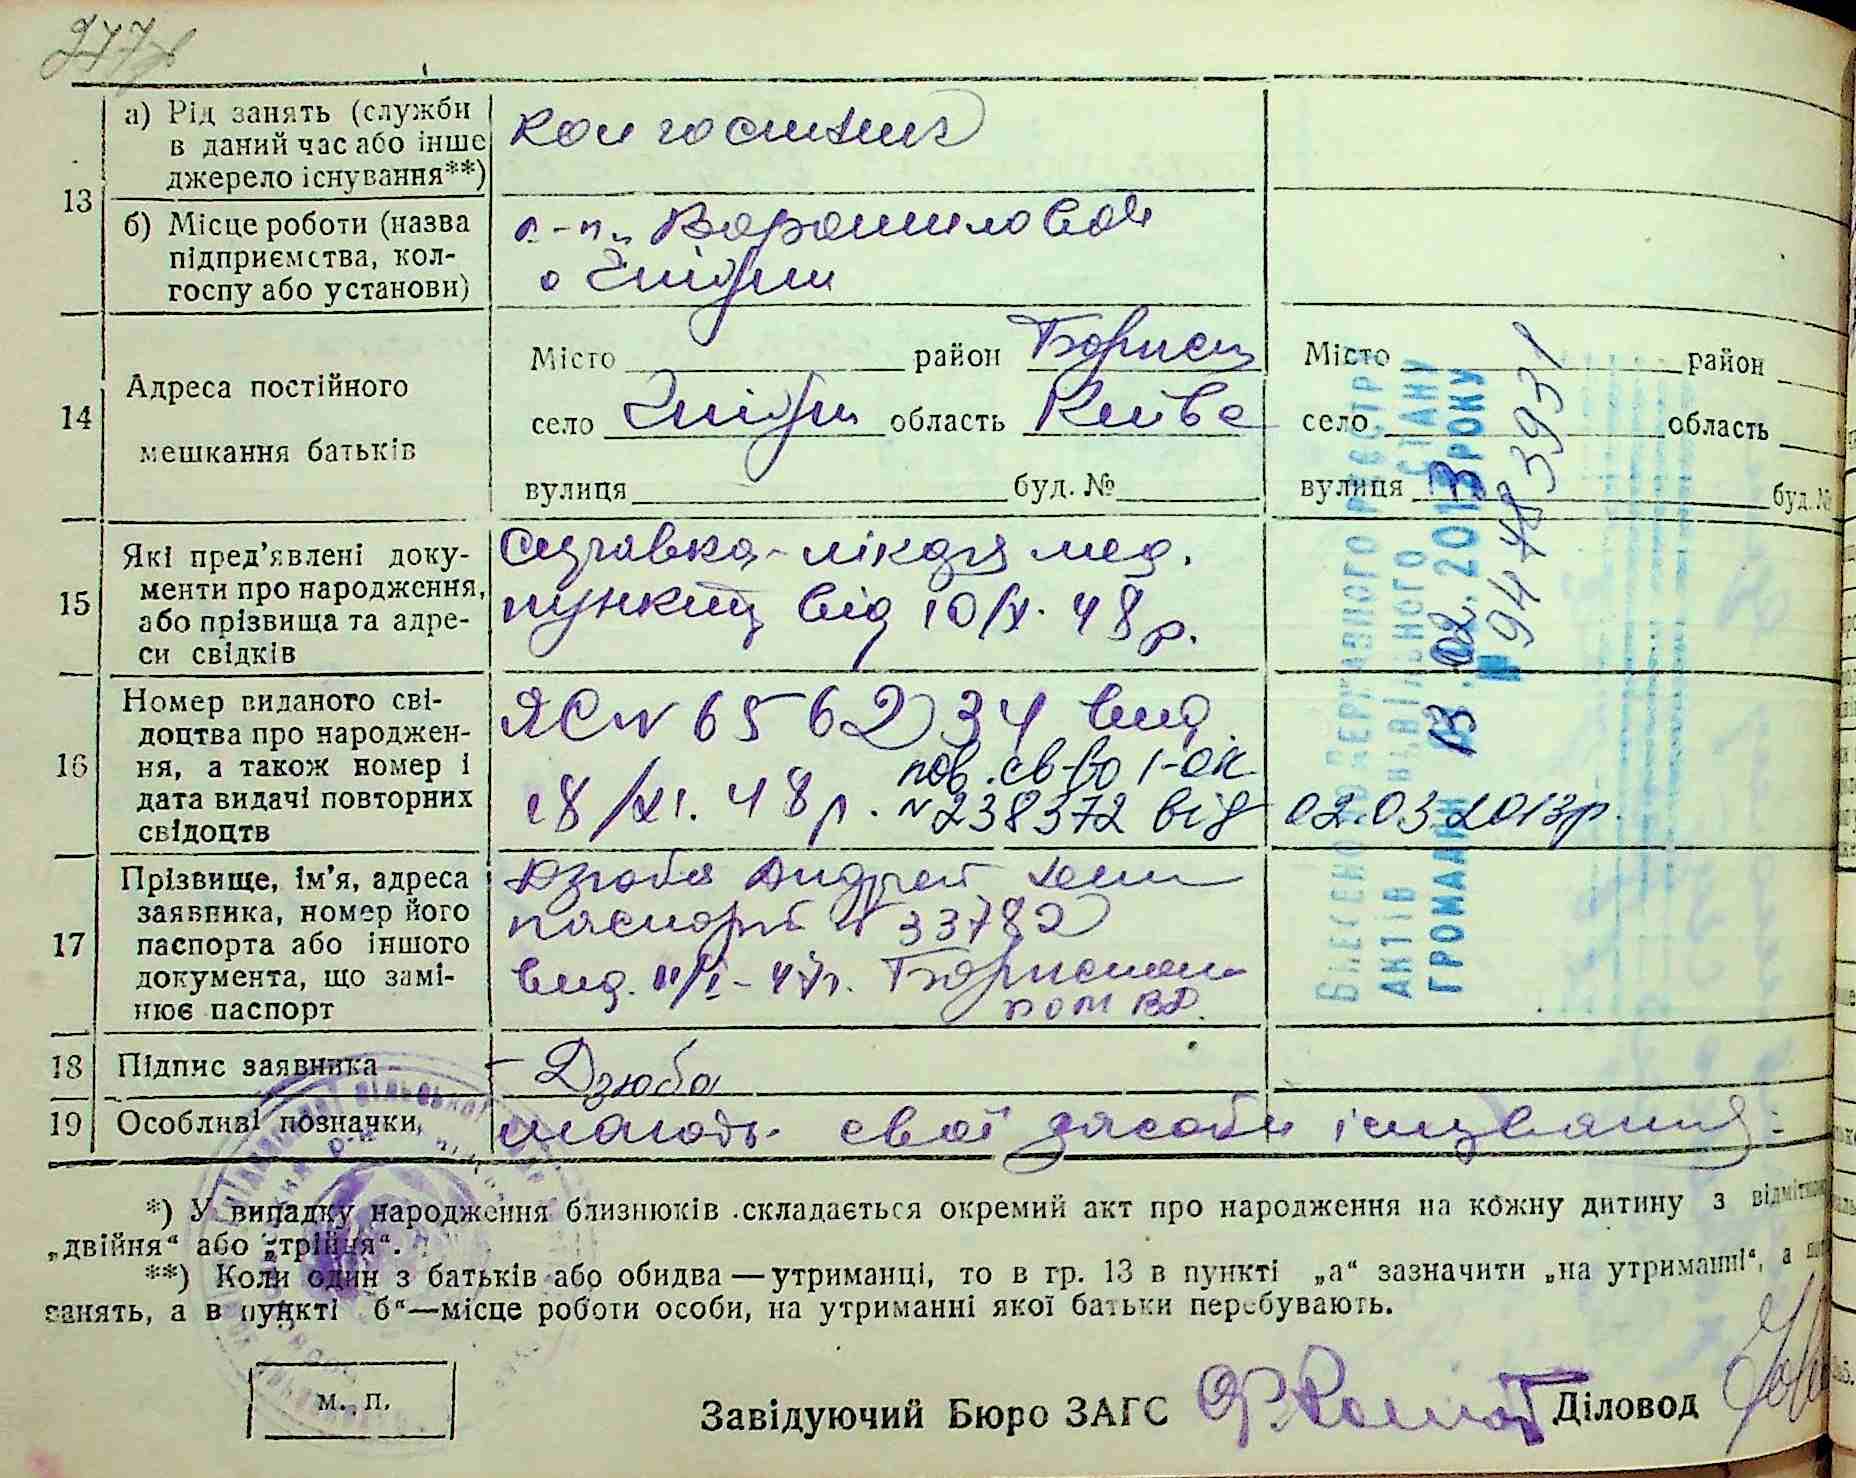 277
а) Рід занять (служби
в даний час або інше
джерело існування**)
колгоспник
13
б) Місце роботи (назва
підприємства, кол-
госпу або установи)
Ворошилова
с Гнідин
14
Адреса постійного
мешкання батьків
Місто район Борисп
село Гнідин область Київс
вулиця буд. №
Місто район
село область
вулиця буд. №
15
Які пред'явлені доку-
менти про народження,
або прізвища та адре-
си свідків
Справка лікаря мед.
пункту від 10/X. 48 р.
16
Номер виданого сві-
доцтва про народжен-
ня, а також номер і
дата видачі повторних
свідоцтв
ЯС № 656234 вид
18/XI. 48 р.
пов. св-во І-ОК
№ 238372 від 02.03.2013р.
17
Прізвище, ім'я, адреса
заявника, номер його
паспорта або іншого
документа, що замі-
нює паспорт
Дзюба Андрей
паспорт № 33782
вид. Бориспол
РОМВД.
18
Підпис заявника
Дзюба
19
Особливі позначки,
мають свої засоби існування
ВНЕСЕНО ДО ДЕРЖАВНОГО РЕЄСТРУ
АКТІВ ЦИВІЛЬНОГО СТАНУ
ГРОМАДЯН 13.02.2013 РОКУ
№ 94483931
*) У випадку народження близнюків складається окремий акт про народження на кожну дитину з відміткою
„двійня“ або „трійня“.
**) Коли один з батьків або обидва—утриманці, то в гр. 13 в пункті „а“ зазначити „на утриманні“, а
занять, а в пункті б“—місце роботи особи, на утриманні якої батьки перебувають.
м. п.
Завідуючий Бюро ЗАГС
Діловод